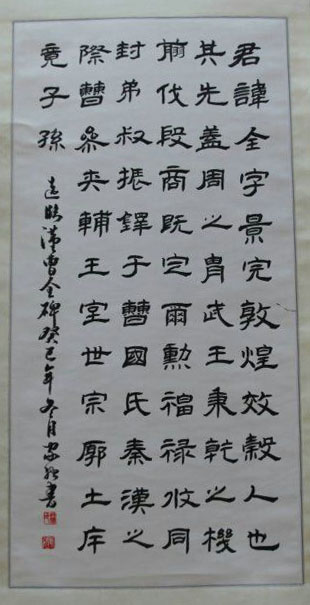 君諱全字景完敦煌效穀人也
其先蓋周之胄武王秉乾之機
翦伐殷商既定爾勳福祿攸同
封弟叔振鐸于曹國氏秦漢之
際曹參夾輔王室世宗廓土斥
竟子孫
臨漢曹全碑癸巳年冬月書